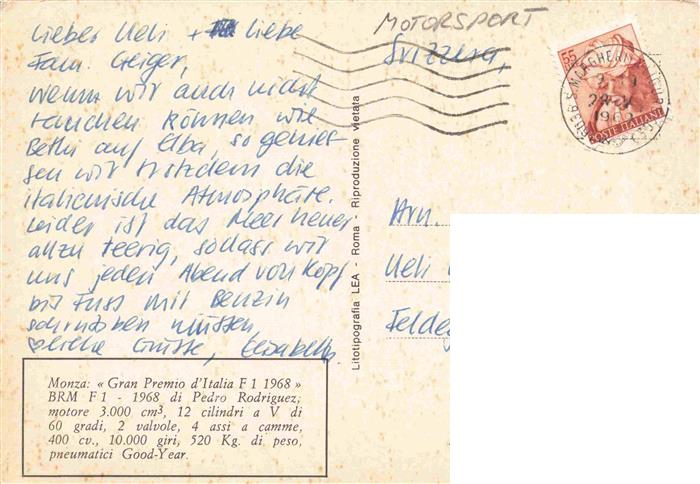 Lieber Ueli + liebe
Fam. Geiger,
wenn wir auch nicht
tauchen können wie
Bethi auf Elba, so genies-
sen wir trotzdem die
italienische Atmosphäre.
Leider ist das Meer heuer
allzu teerig, sodass wir
uns jeden Abend von Kopf
bis Fuss mit Benzin
schrubben müssen.
Liebe Grüsse, Elisabeth
MOTORSPORT
Svizzera,
55
POSTE ITALIANE
S. MARGHERITA
Arn.
Ueli
Litotipografia LEA - Roma - Riproduzione vietata
Monza: « Gran Premio d'Italia F 1 1968 »
BRM F 1 - 1968 di Pedro Rodriguez;
motore 3.000 cm³, 12 cilindri a V di
60 gradi, 2 valvole, 4 assi a camme,
400 cv., 10.000 giri, 520 Kg. di peso,
pneumatici Good-Year.